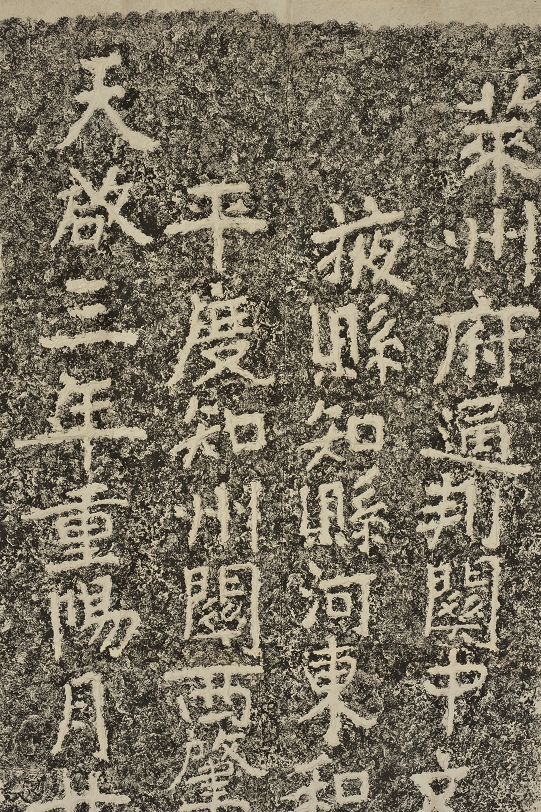 萊州府通判關中
掖縣知縣河東
平度知州關西
天啓三年重陽月